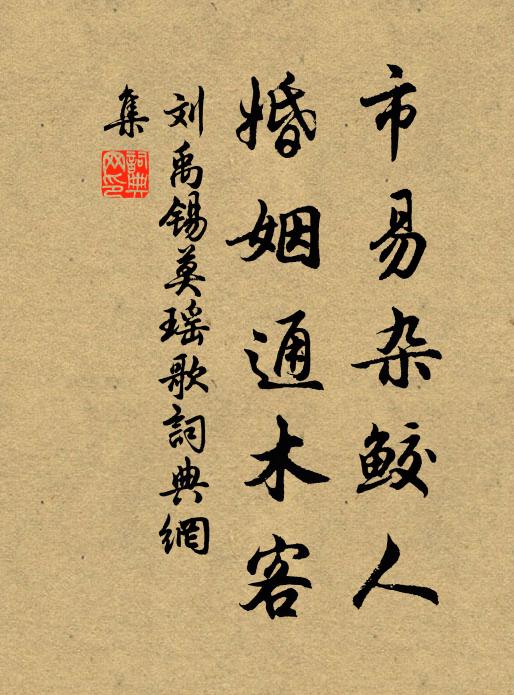 市易杂鲛人
婚姻通木客
刘禹锡莫瑶歌詞典網
集
詞典
网印